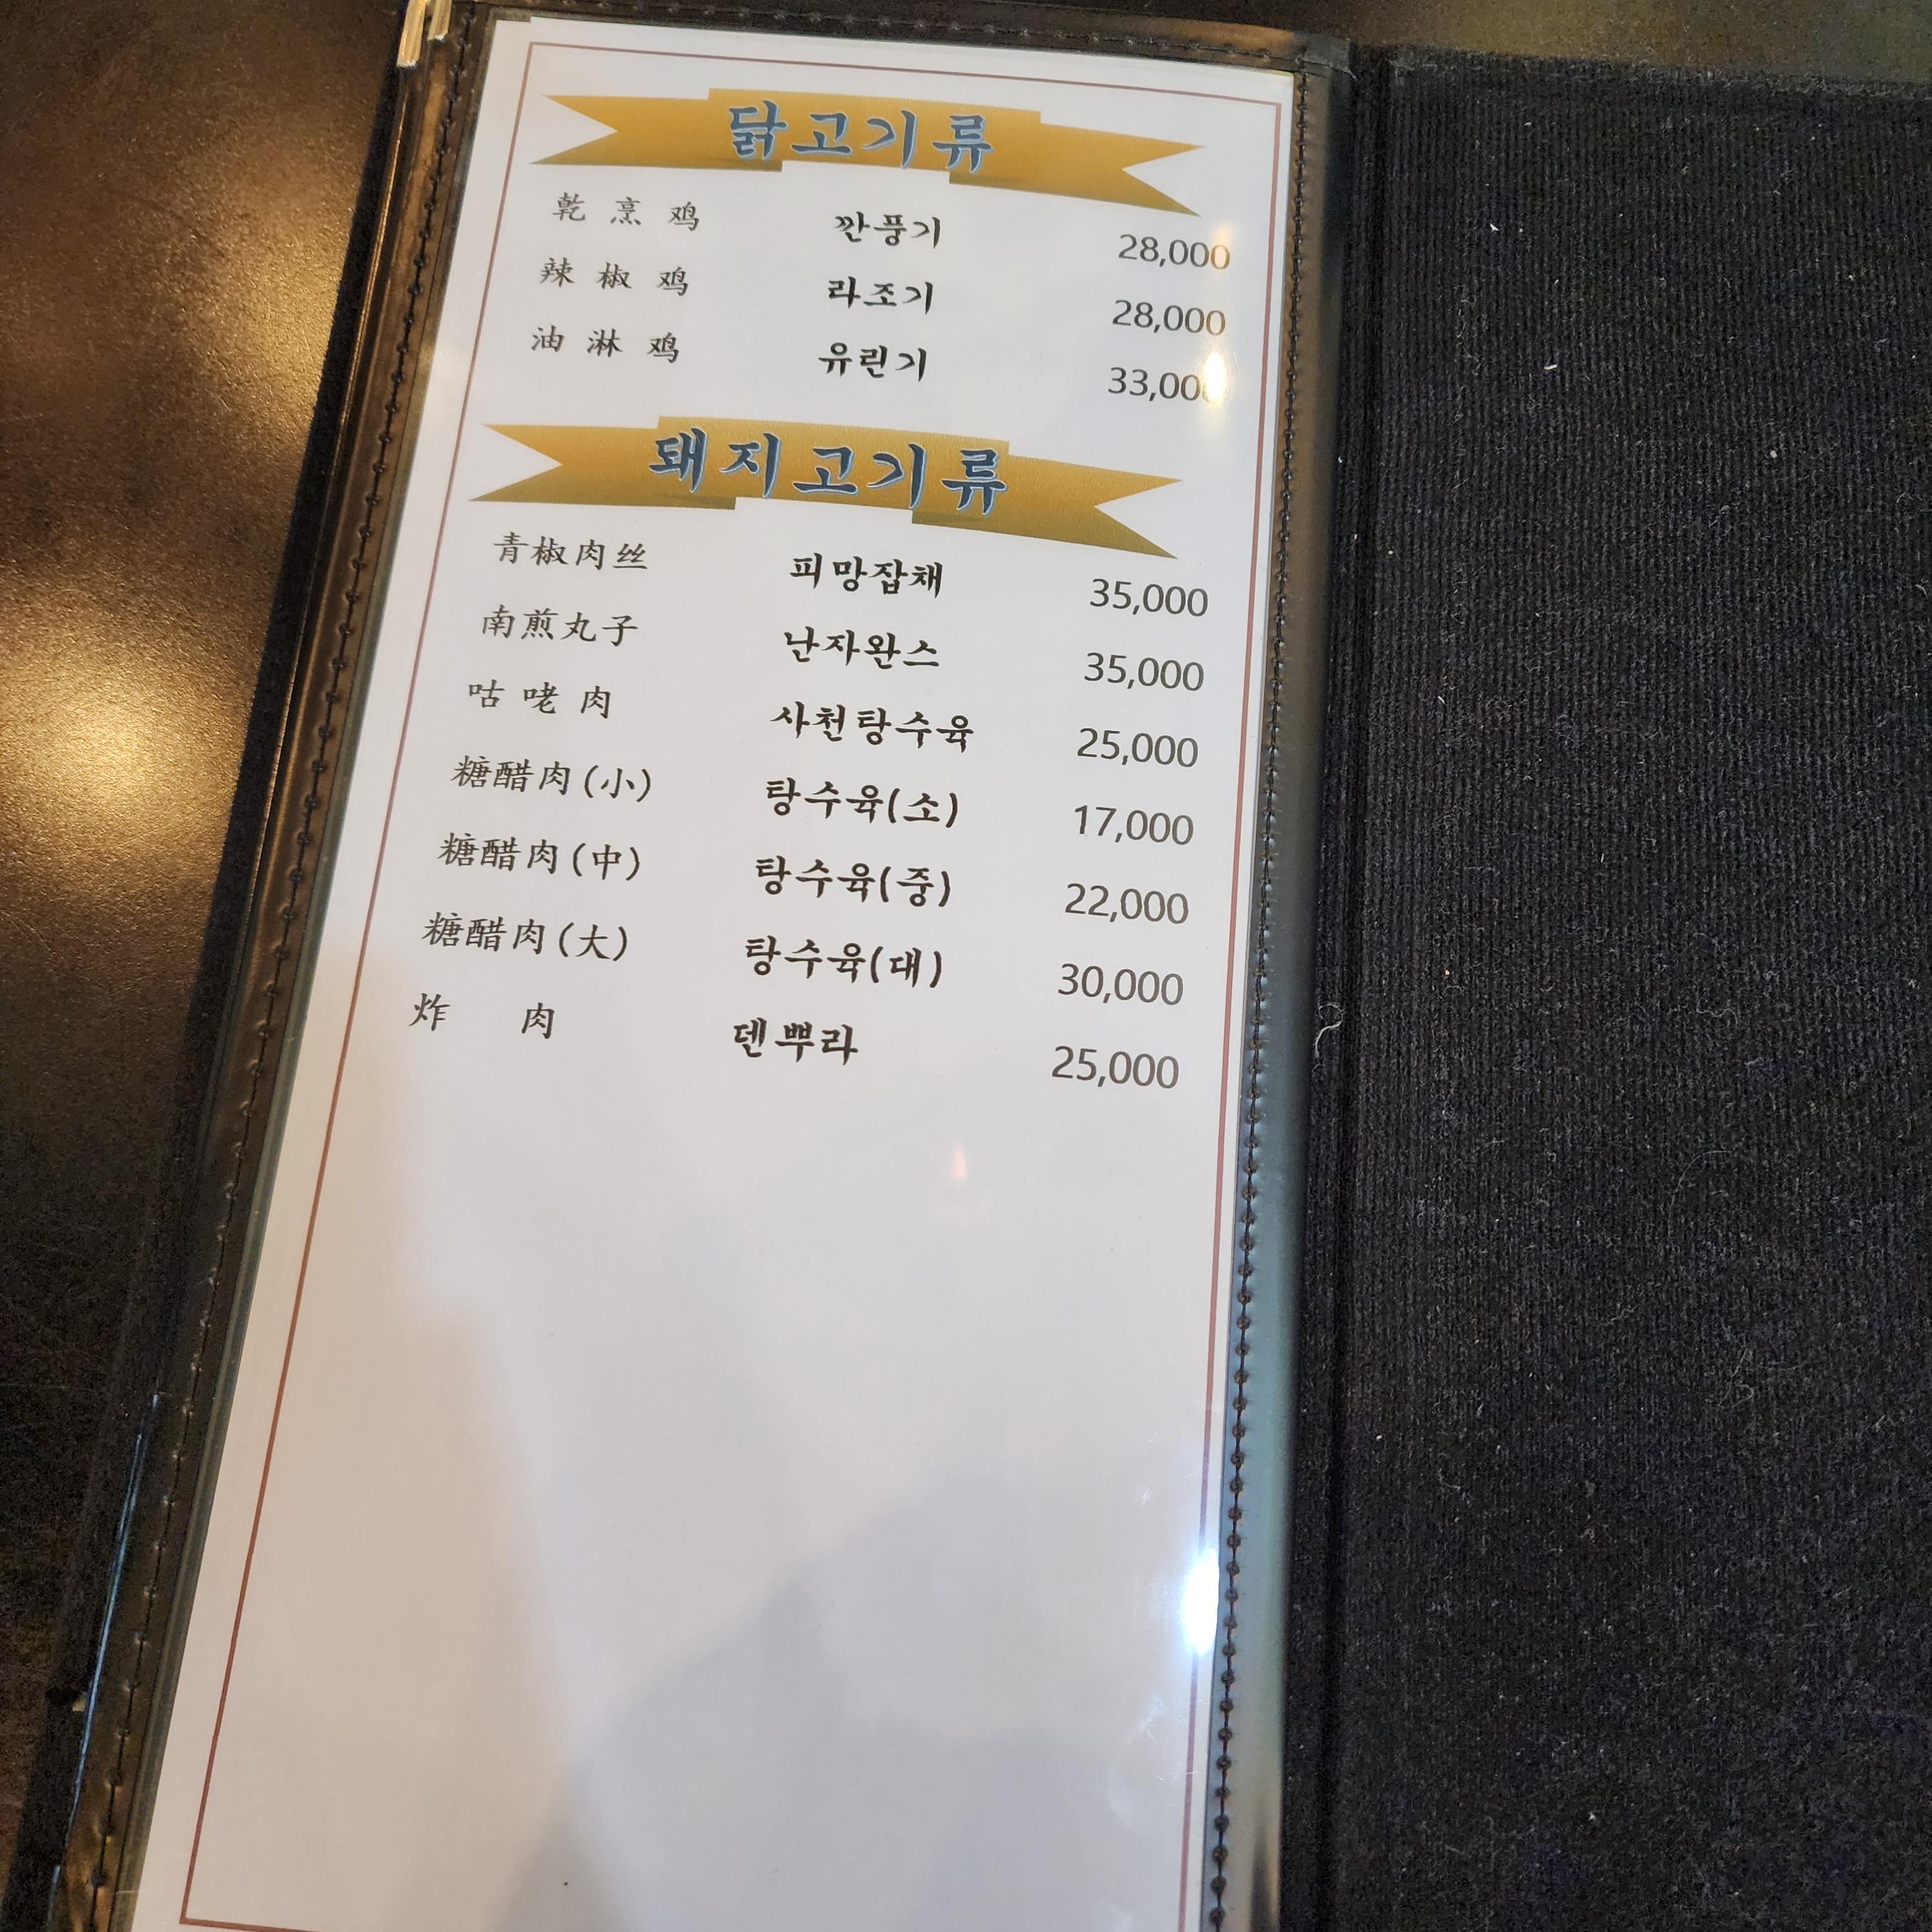 닭고기류
乾烹鸡 깐풍기 28,000
辣椒鸡 라조기 28,000
油淋鸡 유린기 33,000
돼지고기류
青椒肉丝 피망잡채 35,000
南煎丸子 난자완스 35,000
咕咾肉 사천탕수육 25,000
糖醋肉(小) 탕수육(소) 17,000
糖醋肉(中) 탕수육(중) 22,000
糖醋肉(大) 탕수육(대) 30,000
炸肉 덴뿌라 25,000